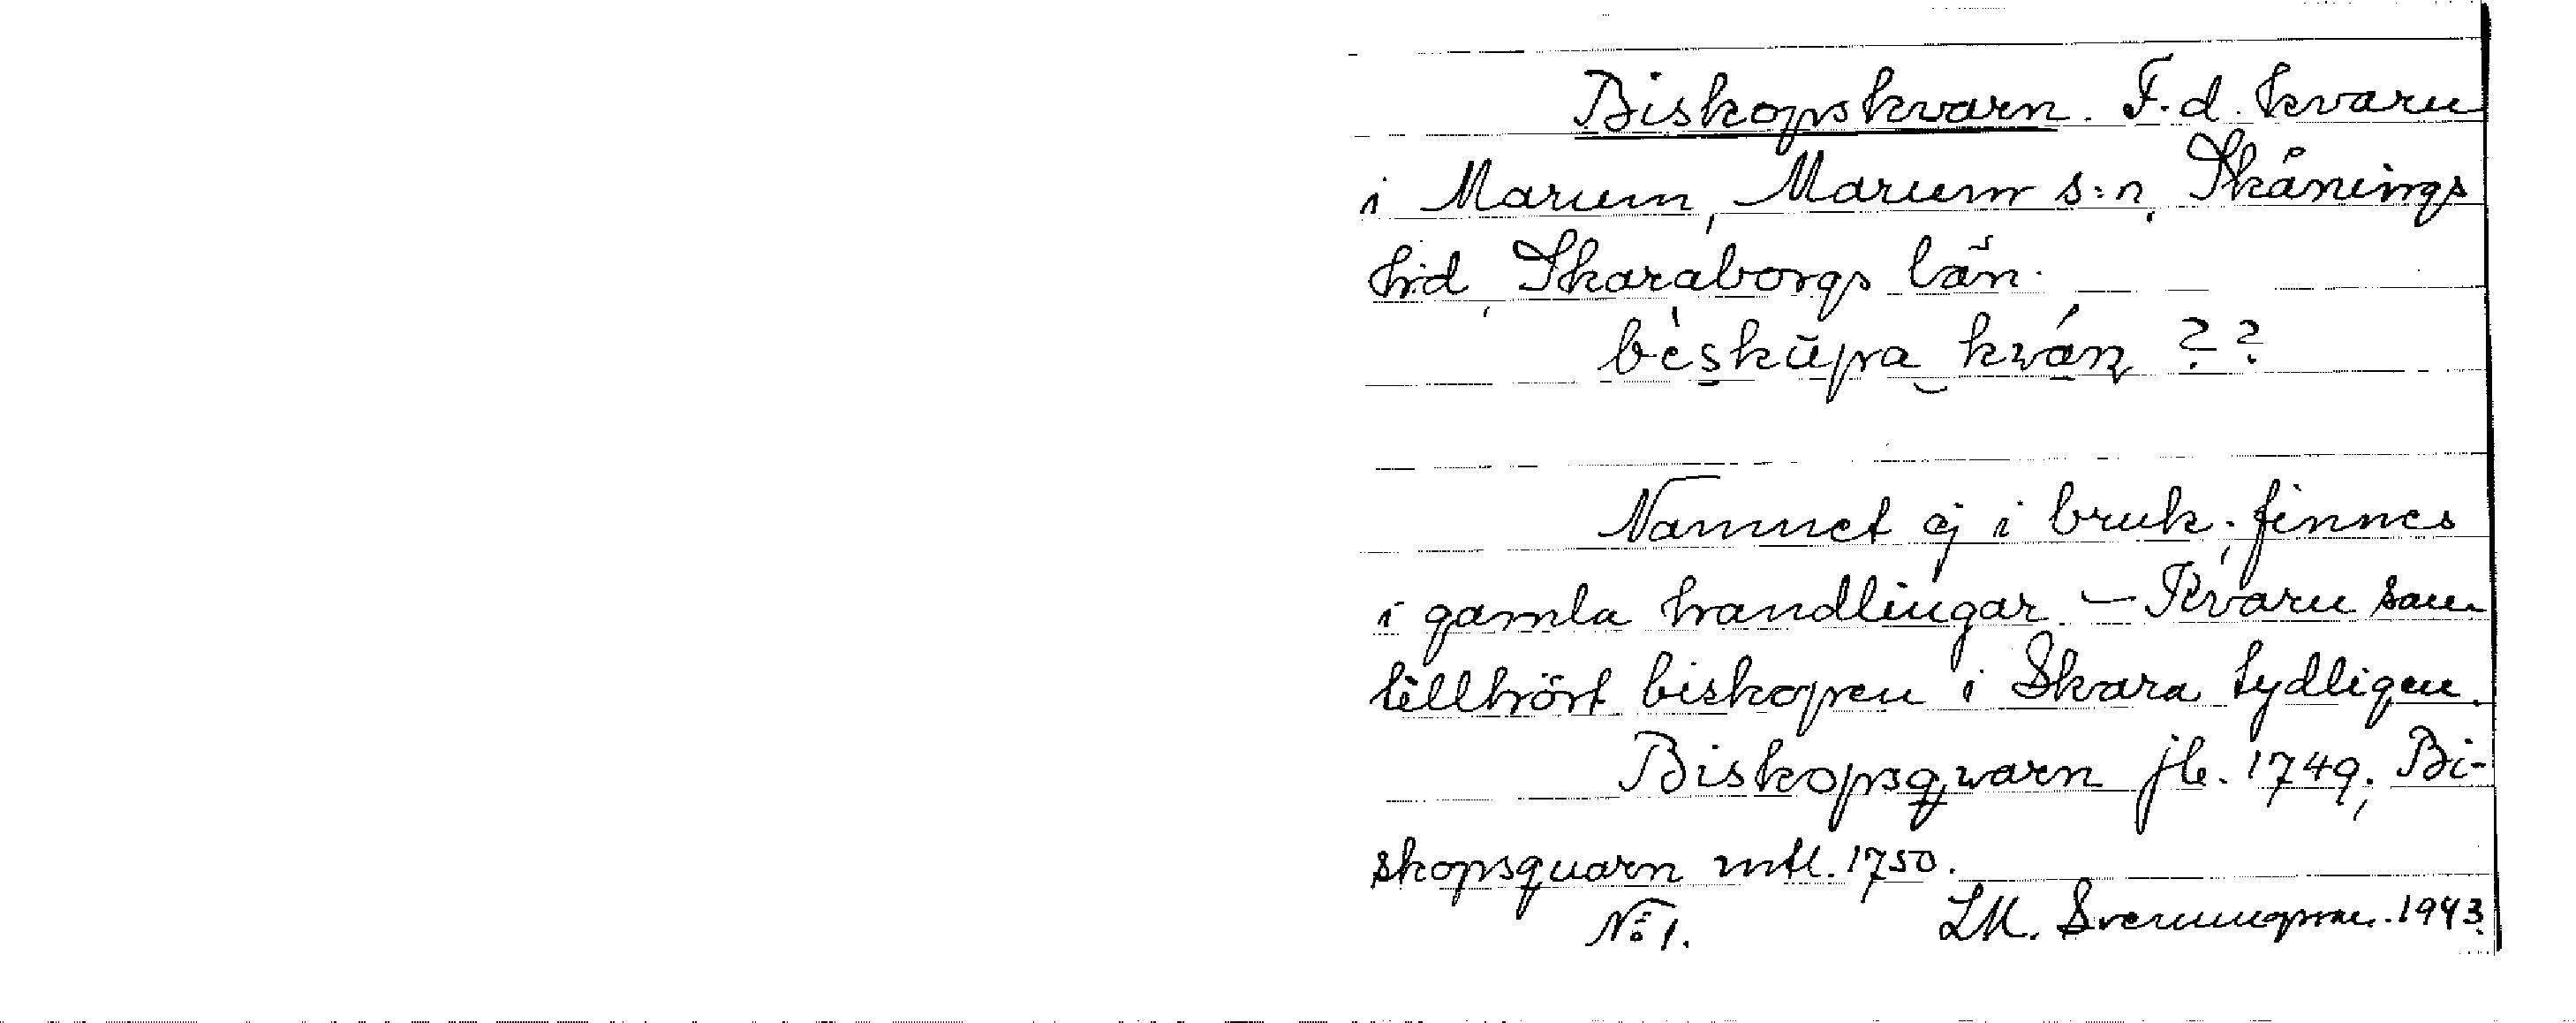 Biskopskvarn. F. d. kvarn
i Marum, Marum s:n, Skånings
hd, Skaraborgs län.
bèskŭpa kván ??
Namnet ej i bruk; finnes
i gamla handlingar – Kvarn som
tillhört biskopen i Skara tydligen.
Biskopsqwarn jb. 1749; Bi-
skopsquarn mtl. 1750.
No 1. LM. Svenungsson. 1943.